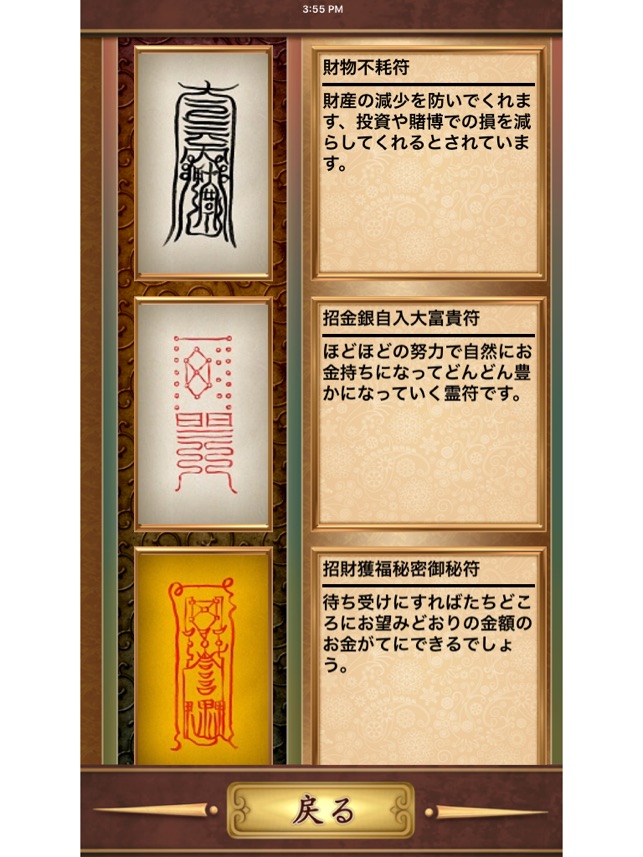 3:55 PM
財物不耗符
財産の減少を防いでくれま
す、投資や賭博での損を減
らしてくれるとされていま
す。
招金銀自入大富貴符
ほどほどの努力で自然にお
金持ちになってどんどん豊
かになっていく霊符です。
招財獲福秘密御秘符
待ち受けにすればたちどこ
ろにお望みどおりの金額の
お金がてにできるでしょ
う。
戻る